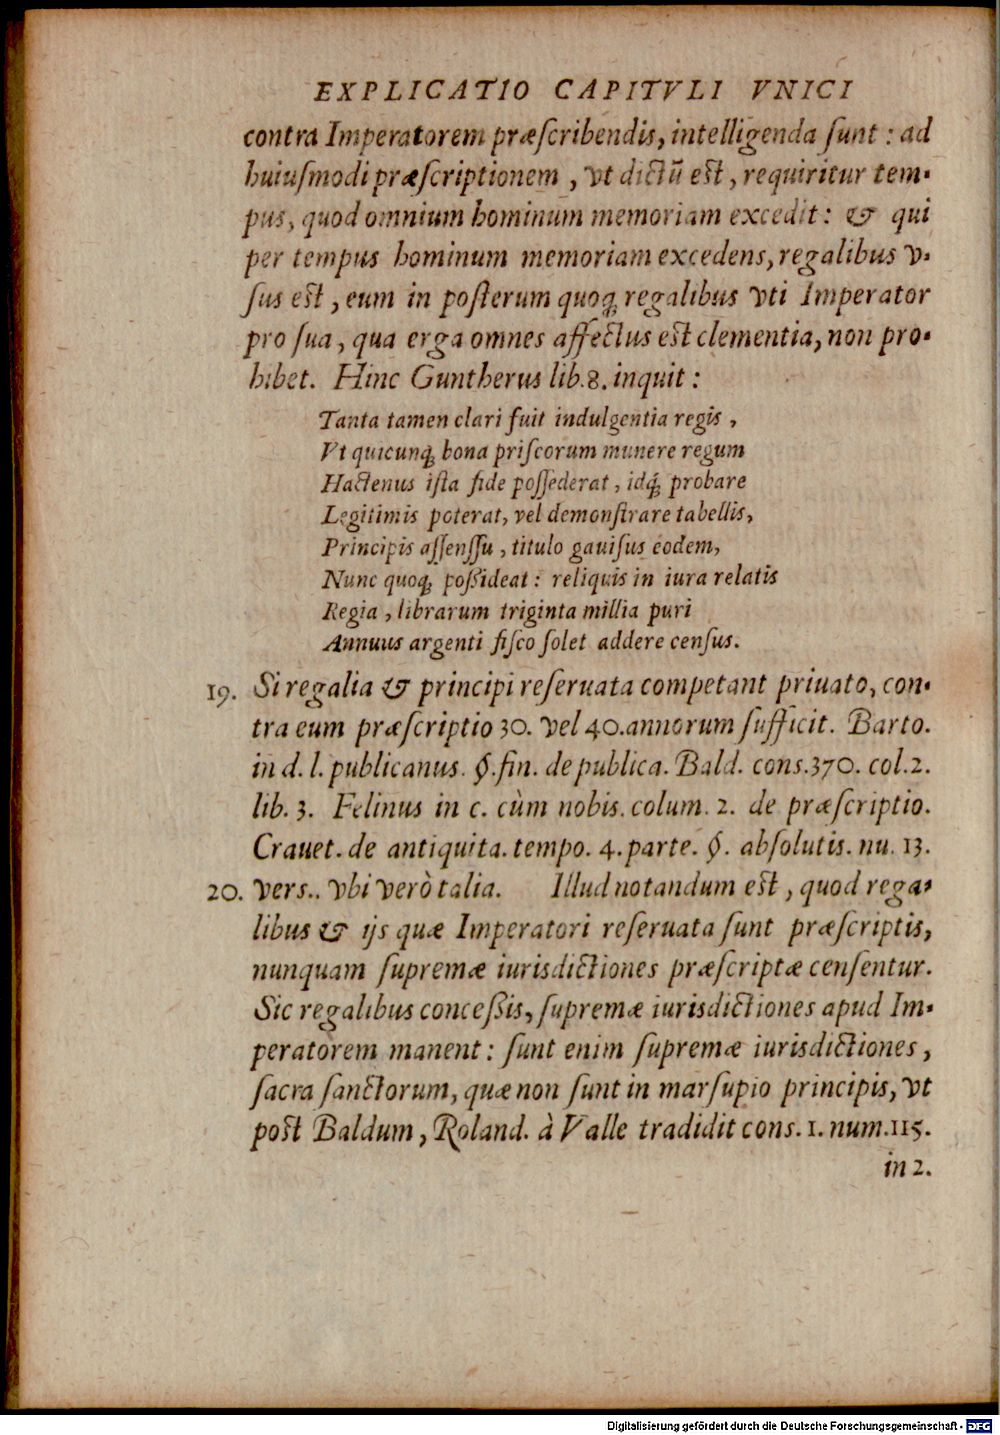 EXPLICATIO CAPITVLI VNICI
contra Imperatorem præſcribendis, intelligenda ſunt: ad
huiuſmodi præſcriptionem, vt dictũ est, requiritur tem-
pus, quod omnium hominum memoriam excedit: & qui
per tempus hominum memoriam excedens, regalibus v-
ſus est, eum in poſterum quoq; regalibus vti Imperator
pro ſua, qua erga omnes affectus est clementia, non pro-
hibet. Hinc Guntherus lib. 8. inquit:
Tanta tamen clari fuit indulgentia regis,
Vt quicunq; bona priſcorum munere regum
Hactenus iſta fide poſſederat, idq́; probare
Legitimis poterat, vel demonſtrare tabellis,
Principis aſſenſſu, titulo gauiſus eodem,
Nunc quoq; poßideat: reliquis in iura relatis
Regia, librarum triginta millia puri
Annuus argenti fiſco ſolet addere cenſus.
19. Si regalia & principi reſeruata competant priuato, con-
tra eum præſcriptio 30. vel 40. annorum ſufficit. Barto.
in d. l. publicanus. §. fin. de publica. Bald. cons. 370. col. 2.
lib. 3. Felinus in c. cùm nobis. colum. 2. de præſcriptio.
Crauet. de antiquita. tempo. 4. parte. §. abſolutis. nu. 13.
20. vers.. vbi verò talia. Illud notandum est, quod rega-
libus & ijs quæ Imperatori reſeruata ſunt præſcriptis,
nunquam ſupremæ iurisdictiones præſcriptæ cenſentur.
Sic regalibus conceßis, ſupremæ iurisdictiones apud Im-
peratorem manent: ſunt enim ſupremæ iurisdictiones,
ſacra ſanctorum, quæ non ſunt in marſupio principis, vt
post Baldum, Roland. à Valle tradidit cons. 1. num. 115.
in 2.
Digitalisierung gefördert durch die Deutsche Forschungsgemeinschaft - DFG